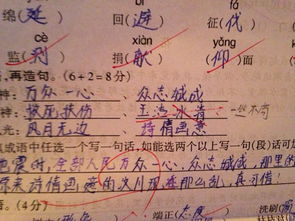 fá
绵(延) 回(避) 征(代)
cè xiàn yǒng
监(列) 捐(献) (仰)面
,再造句。(6+2=8分)
神: 万众一心、众志成城
神: 救死扶伤、玉洁冰清
光: 风月无边、诗情画意
成语中任选一个写一句话,如能选两个以上写一句(段)话可
地震时,全部人民万众一心、众志成城,那里的
原来诗情画意的汶川现在那么乱,真可惜!
。(4分)
端正( 洗刷(